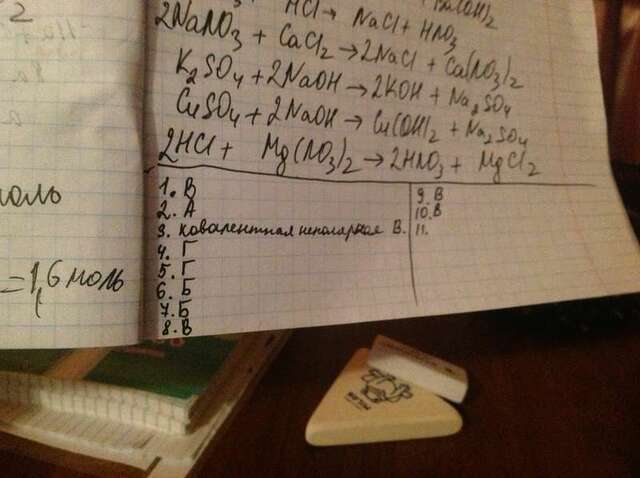 2
HCl → NaCl + HNO₃
2NaNO₃ + CaCl₂ → 2NaCl + Ca(NO₃)₂
K₂SO₄ + 2NaOH → 2KOH + Na₂SO₄
CuSO₄ + 2NaOH → Cu(OH)₂ + Na₂SO₄
2HCl + Mg(NO₃)₂ → 2HNO₃ + MgCl₂
1. В
2. А
3. ковалентная неполярная В.
4. Г
5. Г
6. Б
7. Б
8. В
9. В
10. В
11.
моль
= 1,6 моль